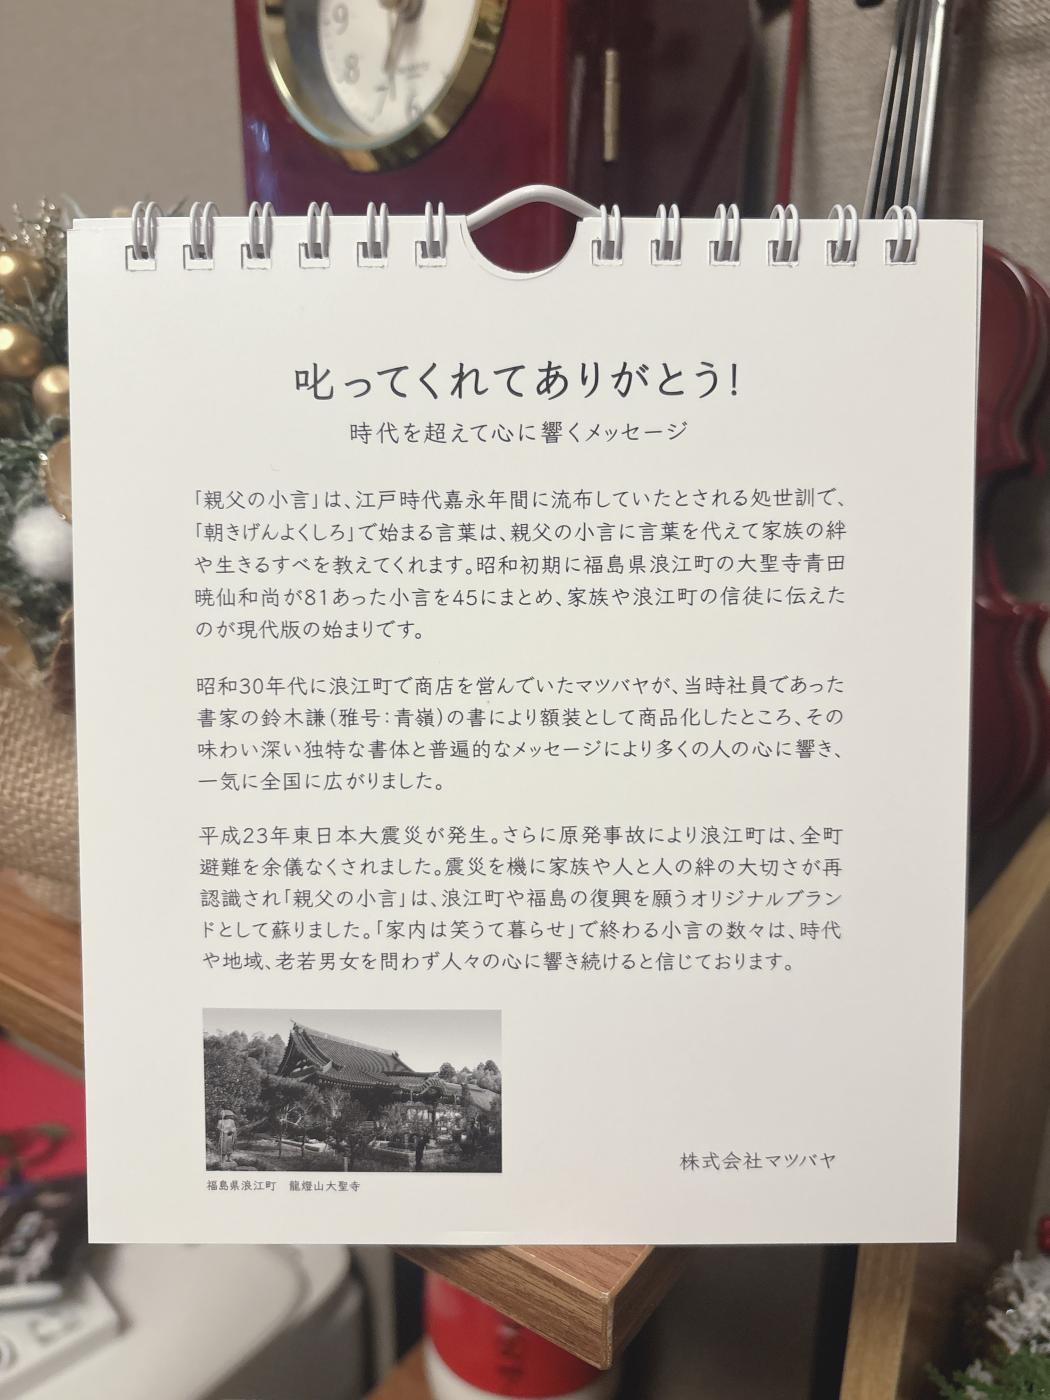 9
8
7
6
叱ってくれてありがとう!
時代を超えて心に響くメッセージ
「親父の小言」は、江戸時代嘉永年間に流布していたとされる処世訓で、
「朝きげんよくしろ」で始まる言葉は、親父の小言に言葉を代えて家族の絆
や生きるすべを教えてくれます。昭和初期に福島県浪江町の大聖寺青田
暁仙和尚が81あった小言を45にまとめ、家族や浪江町の信徒に伝えた
のが現代版の始まりです。
昭和30年代に浪江町で商店を営んでいたマツバヤが、当時社員であった
書家の鈴木謙(雅号:青嶺)の書により額装として商品化したところ、その
味わい深い独特な書体と普遍的なメッセージにより多くの人の心に響き、
一気に全国に広がりました。
平成23年東日本大震災が発生。さらに原発事故により浪江町は、全町
避難を余儀なくされました。震災を機に家族や人と人の絆の大切さが再
認識され「親父の小言」は、浪江町や福島の復興を願うオリジナルブラン
ドとして蘇りました。「家内は笑うて暮らせ」で終わる小言の数々は、時代
や地域、老若男女を問わず人々の心に響き続けると信じております。
福島県浪江町 龍燈山大聖寺
株式会社マツバヤ